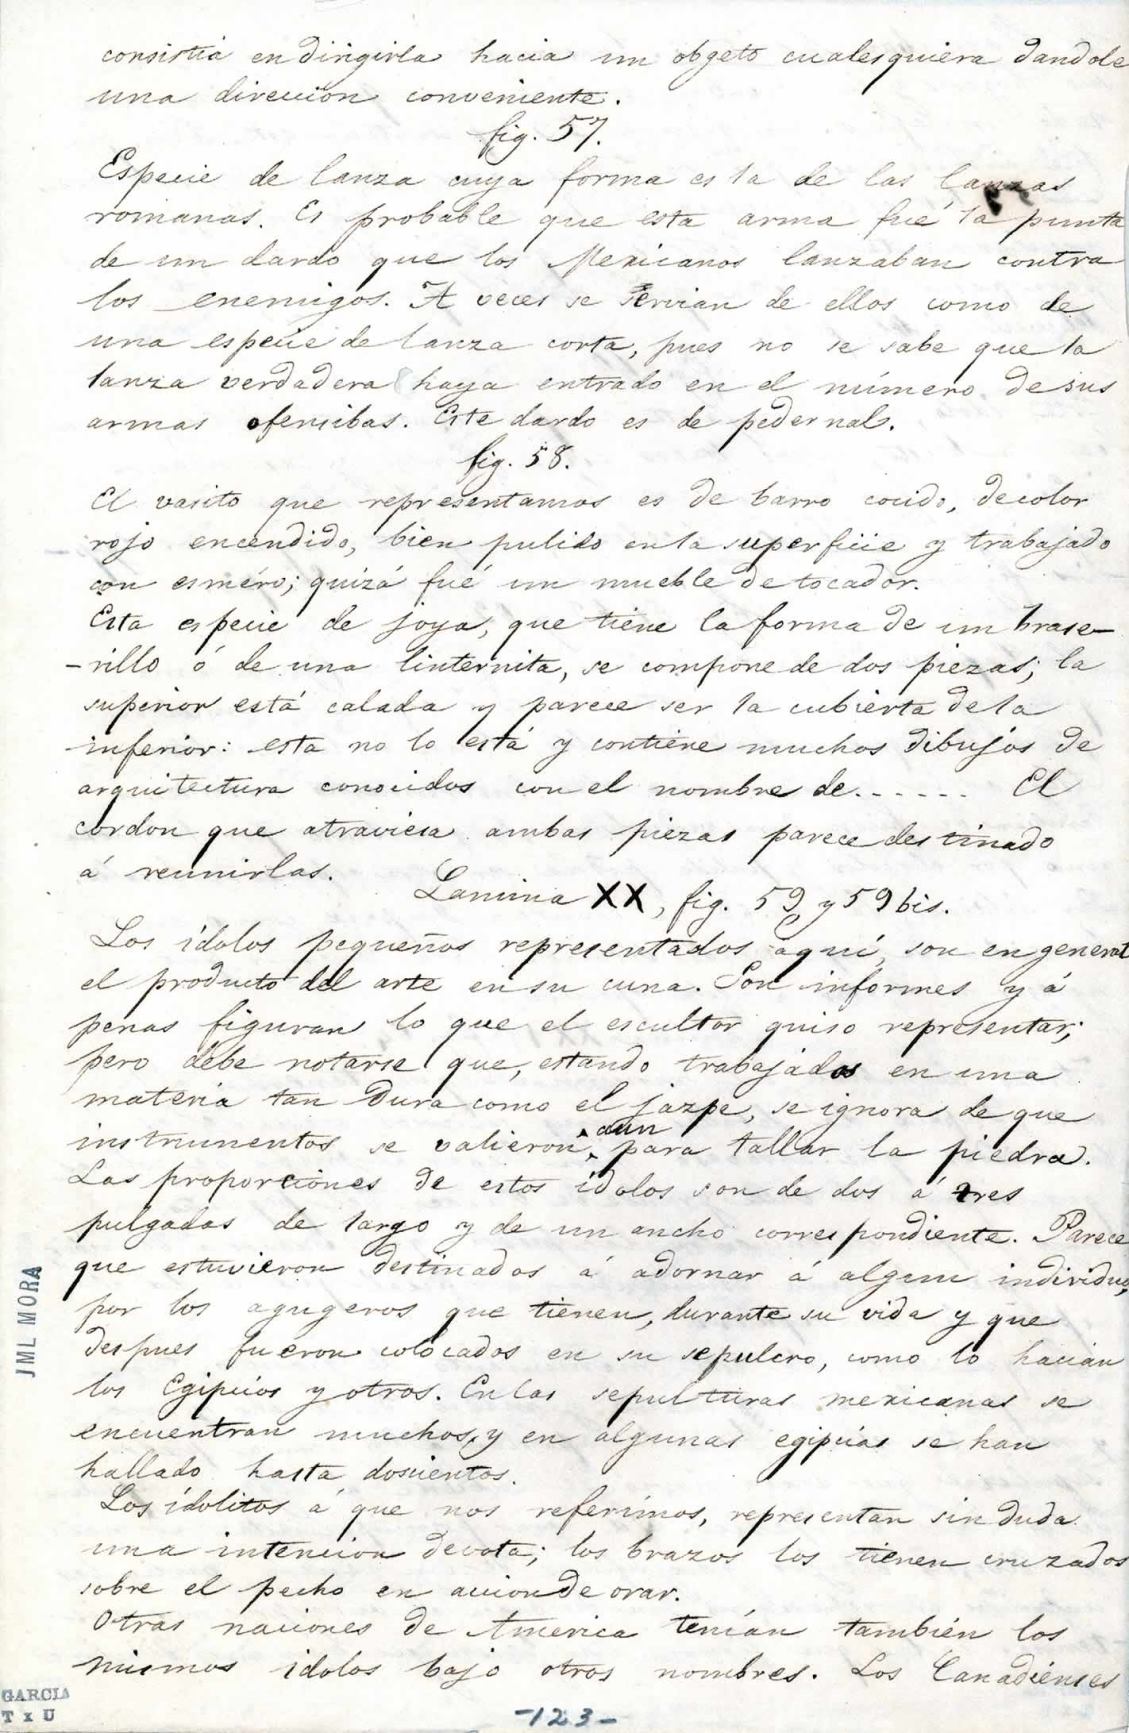 consistiá en dirigirla hacia un obgeto cualesquiera dandole
una direccion conveniente.
fig. 57.
Especie de lanza cuya forma es la de las lanzas
romanas. Es probable que esta arma fué la punta
de un dardo que los Mexicanos lanzaban contra
los enemigos. A veces se servian de ellos como de
una especie de lanza corta, pues no se sabe que la
lanza verdadera haya entrado en el número de sus
armas ofensibas. Este dardo es de pedernal.
fig. 58.
El vasito que representamos es de barro cocido, de color
rojo encendido, bien pulido en la superficie y trabajado
con esméro; quizá fué un mueble de tocador.
Esta especie de joya, que tiene la forma de un brase-
-rillo ó de una linternita, se compone de dos piezas; la
superior está calada y parece ser la cubierta de la
inferior: esta no lo está y contiene muchos dibujos de
arquitectura conocidos con el nombre de...... El
cordon que atraviesa ambas piezas parece destinado
á reunirlas.
Lamina XX, fig. 59 y 59 bis.
Los ídolos pequeños representados aquí, son en general
el producto del arte en su cuna. Son informes y á
penas figuran lo que el escultor quiso representar;
pero debe notarse que, estando trabajados en una
materia tan dura como el jazpe, se ignora de que
instrumentos se valieron aun para tallar la piedra.
Las proporciones de estos ídolos son de dos á tres
pulgadas de largo y de un ancho correspondiente. Parece
que estuvieron destinados á adornar á algun individuo,
por los agugeros que tienen, durante su vida y que
despues fueron colocados en su sepulcro, como lo hacian
los Egipcios y otros. En las sepulturas mexicanas se
encuentran muchos, y en algunas egipcias se han
hallado hasta doscientos.
Los ídolitos á que nos referimos, representan sin duda
una intencion devota; los brazos los tienen cruzados
sobre el pecho en accion de orar.
Otras naciones de America tenían también los
mismos idolos bajo otros nombres. Los Canadienses
JML MORA
GARCIA
T x U
-123-